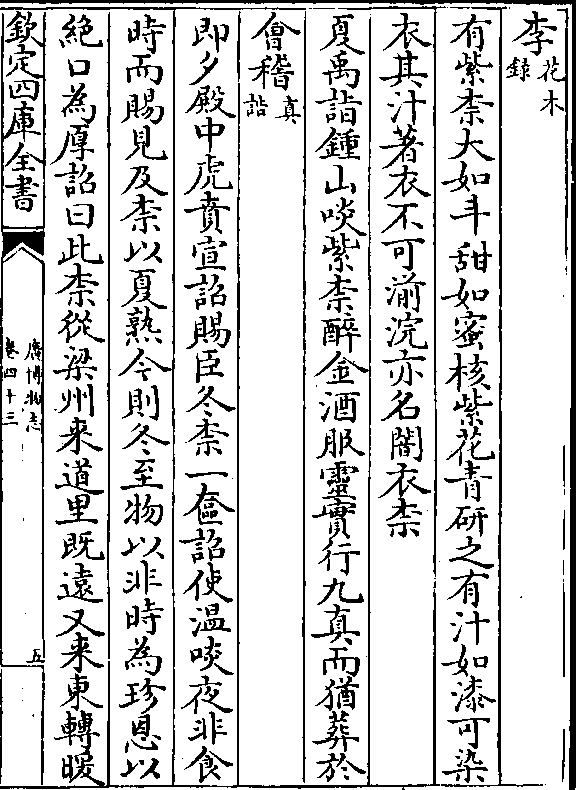 李花木錄
有紫柰大如斗甜如蜜核紫花青研之有汁如漆可染
衣其汁著衣不可湔浣亦名闇衣柰
夏禹詣鍾山啖紫柰醉金酒服靈寳行九真而猶葬於
㑹稽真誥
即夕殿中虎賁宣詔賜臣冬柰一奩詔使温啖夜非食
時而賜見及柰以夏熟今則冬至物以非時為珍恩以
絶口為厚詔曰此柰從梁州来道里既逺又来東轉暖
欽定四庫全書
廣博物志
卷四十三
五